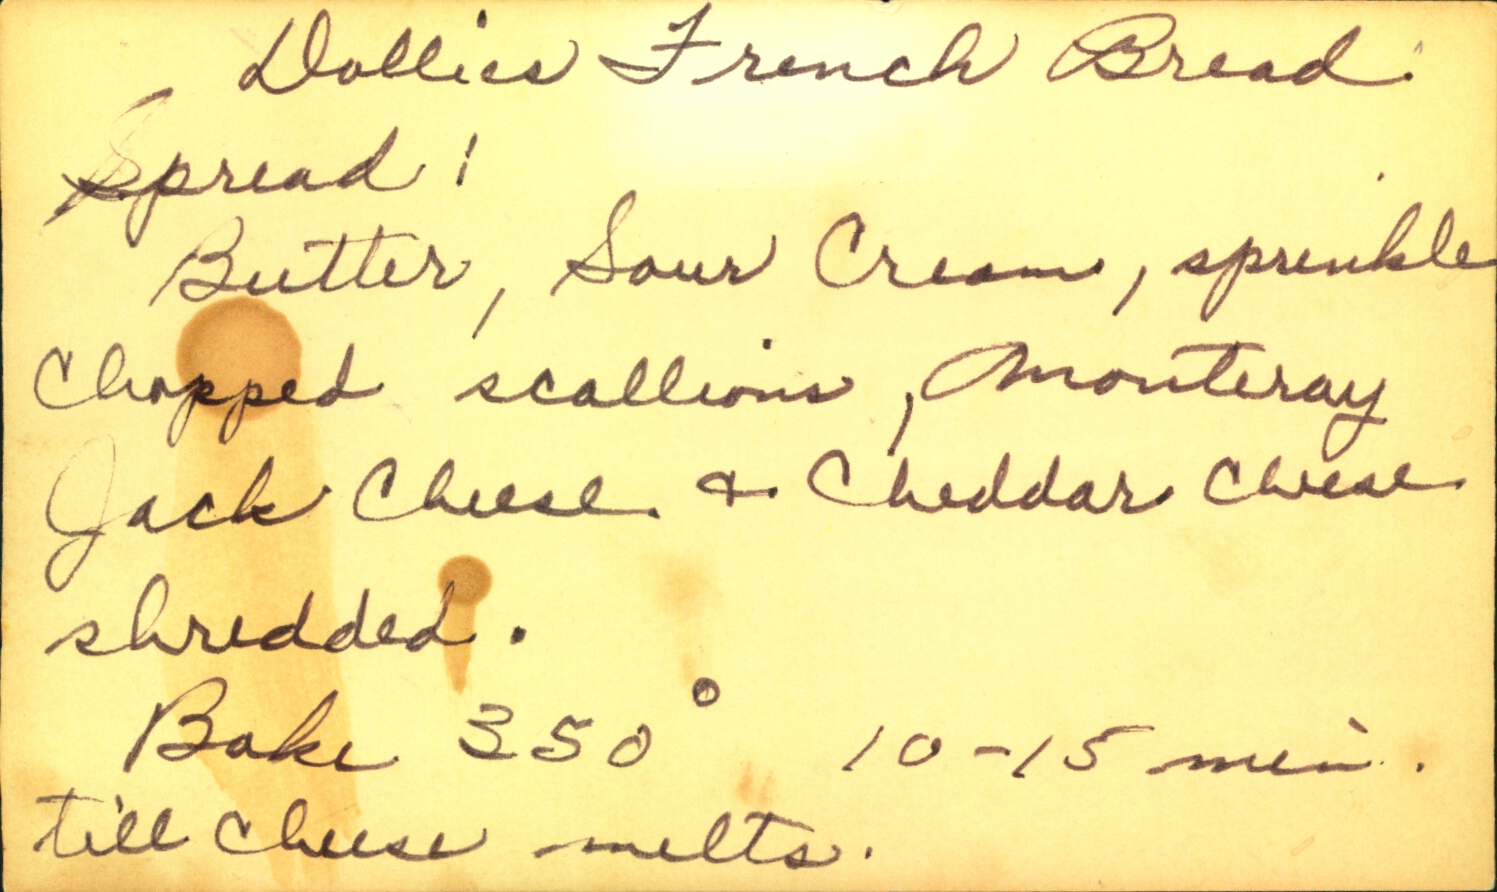 Dollies French Bread.
Spread!
Butter, Sour Cream, sprinkle
Chopped scallions, Monteray
Jack Cheese & Cheddar cheese
shredded.
Bake 350° 10-15 min.
till cheese melts.